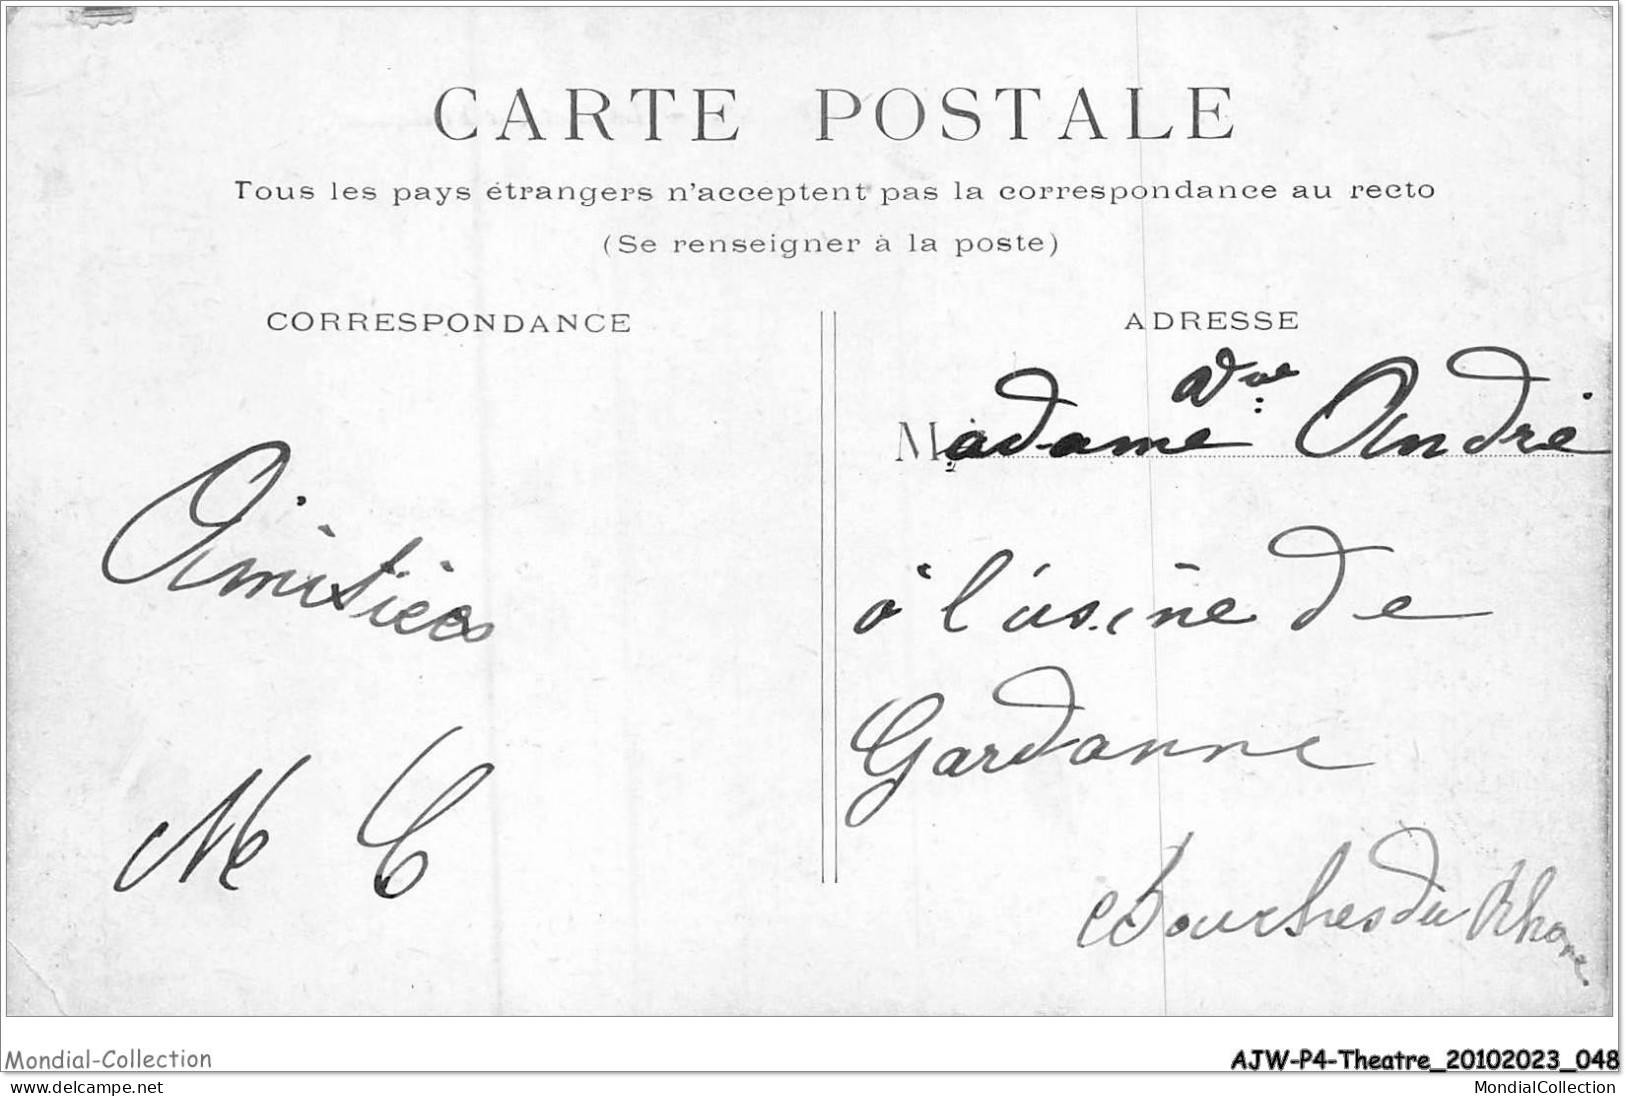 CARTE POSTALE
Tous les pays étrangers n'acceptent pas la correspondance au recto
(Se renseigner à la poste)
CORRESPONDANCE
Amitiées
M C
ADRESSE
Madame Vve André
à l'usine de
Gardanne
Bouches du Rhone
Mondial-Collection
AJW-P4-Theatre_20102023_048
www.delcampe.net
MondialCollection